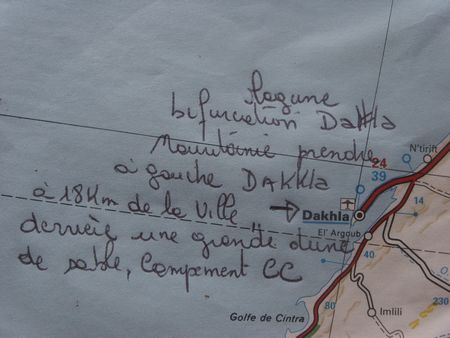 Lagune
bifurcation Dakhla
Mauritanie prendre
à gauche DAKHLA
à 18Km de la ville
derrière une grande dune
de sable, Campement CC
N'tirift
24
39
Dakhla
14
El' Argoub
40
Imlili
230
80
Golfe de Cintra